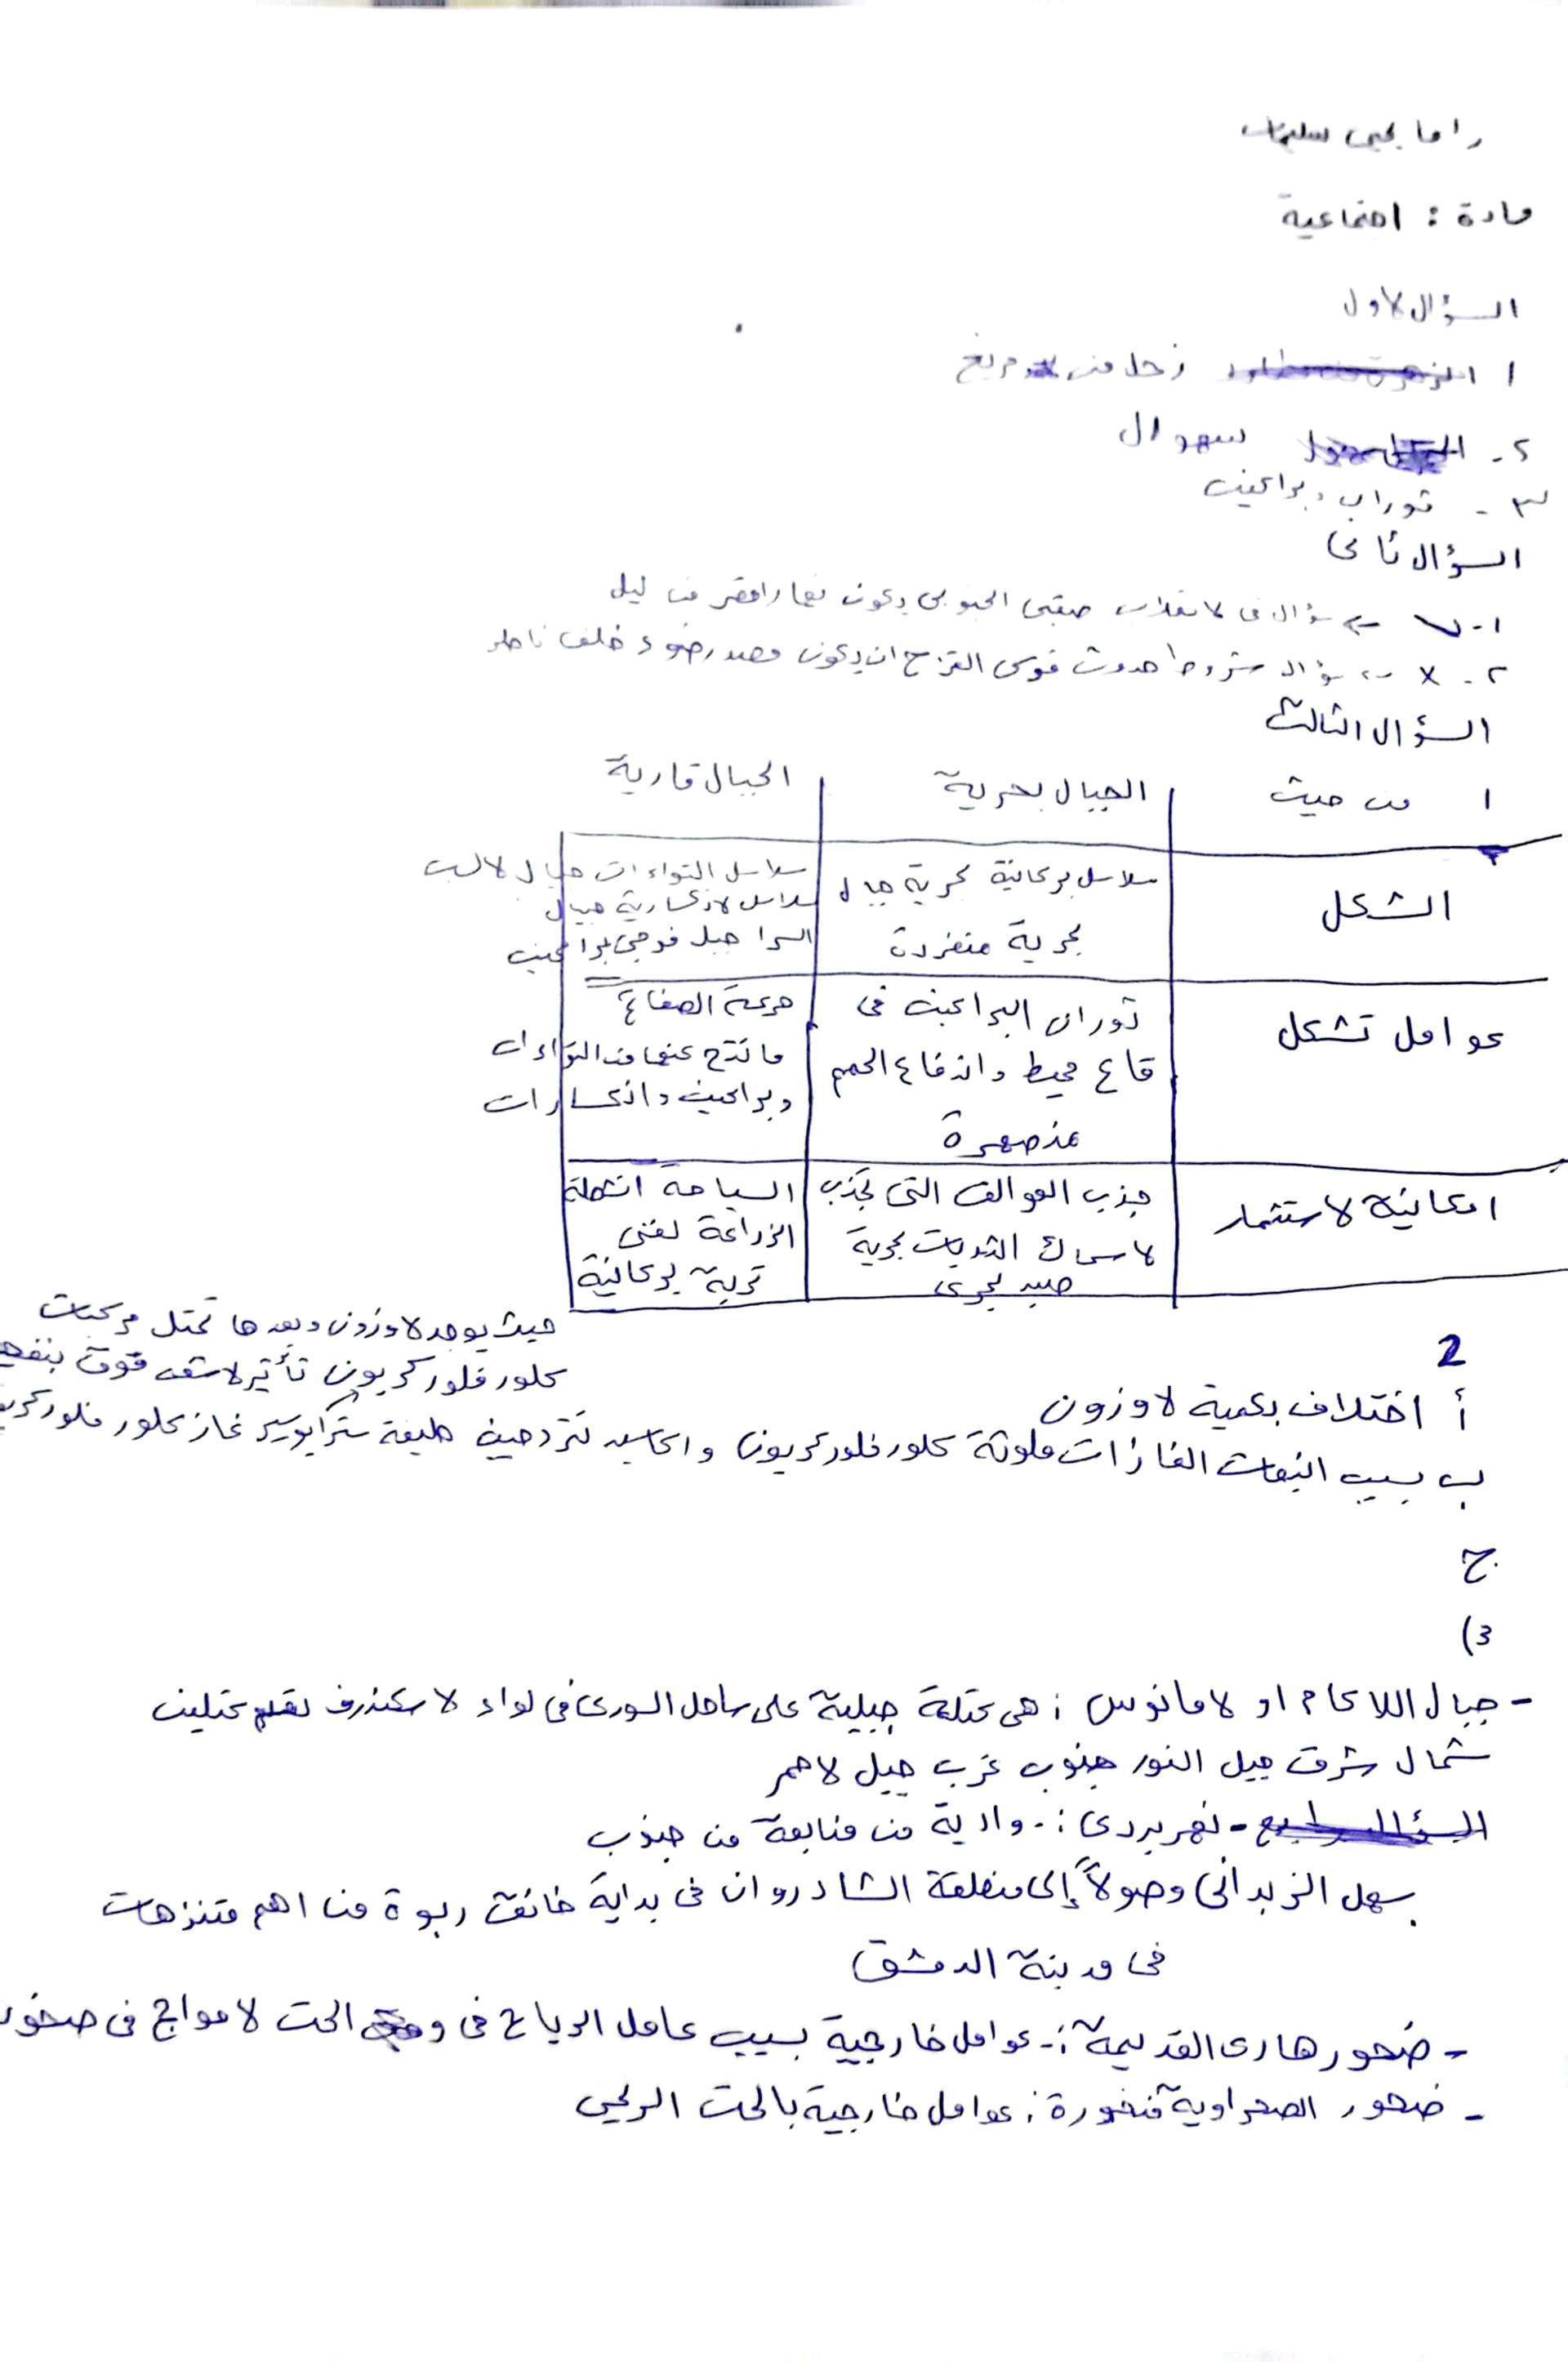 راما يحيى سليمان
مادة : اجتماعية
السؤال لاول
١ زحل من مريخ
٢ - سهوال
٣ - ثوران براكين
السؤال ثاني
١ - ✓ ← سؤال في لانقلاب صيفي الجنوبي يكون نهارا اقصر من ليل
٢ - X ← سؤال شروط حدوث قوس القزح ان يكون مصدر ضوء خلف ناظر
السؤال الثالث
١ من حيث | الجبال بحرية | الجبال قارية
الشكل | سلاسل بركانية بحرية جبال بحرية منفردة | سلاسل التواءات جبال لالب سلاسل لانكسارية جبال السرا جبل فوجي براكين
عوامل تشكل | ثوران البراكين في قاع محيط واندفاع الحمم منصهرة | حركة الصفائح ما نتج عنها من التواءات وبراكين وانكسارات
امكانية لاستثمار | جذب العوالق التي تجذب لاسماك الثديات بحرية صيد بحري | السياحة انشطة الزراعة لغنى تربة بركانية
2
أ اختلاف بكمية لاوزون حيث يوجد لاوزون وبعدها تحتل مركبات
كلور فلور كربون تأثير لاشعه فوق بنفسجي
ب بسبب انبعاث الغازات ملوثة كلور فلور كربون واكاسيد نتروجين طبقة ستراتوسفير غاز كلور فلور كربون
ج
3)
- جبال اللاكام او لامانوس : هي كتلة جبلية على ساحل السوري في لواء لاسكندرون تقسم كتلين
شمال شرق جبل النور جنوب غرب جبل لاحمر
السؤال الرابع - نهر بردى :- وادية من منابعه من جنوب
سهل الزبداني وصولاً إلى منطقة الشادروان في بداية خانق ربوة من اهم متنزهات
في مدينة الدمشق
- ضحور هاري القديمة :- عوامل خارجية بسبب عامل الرياح في و الحت لامواج في صخور
- ضحور الصحراوية منخورة : عوامل خارجية بالحت الريحي